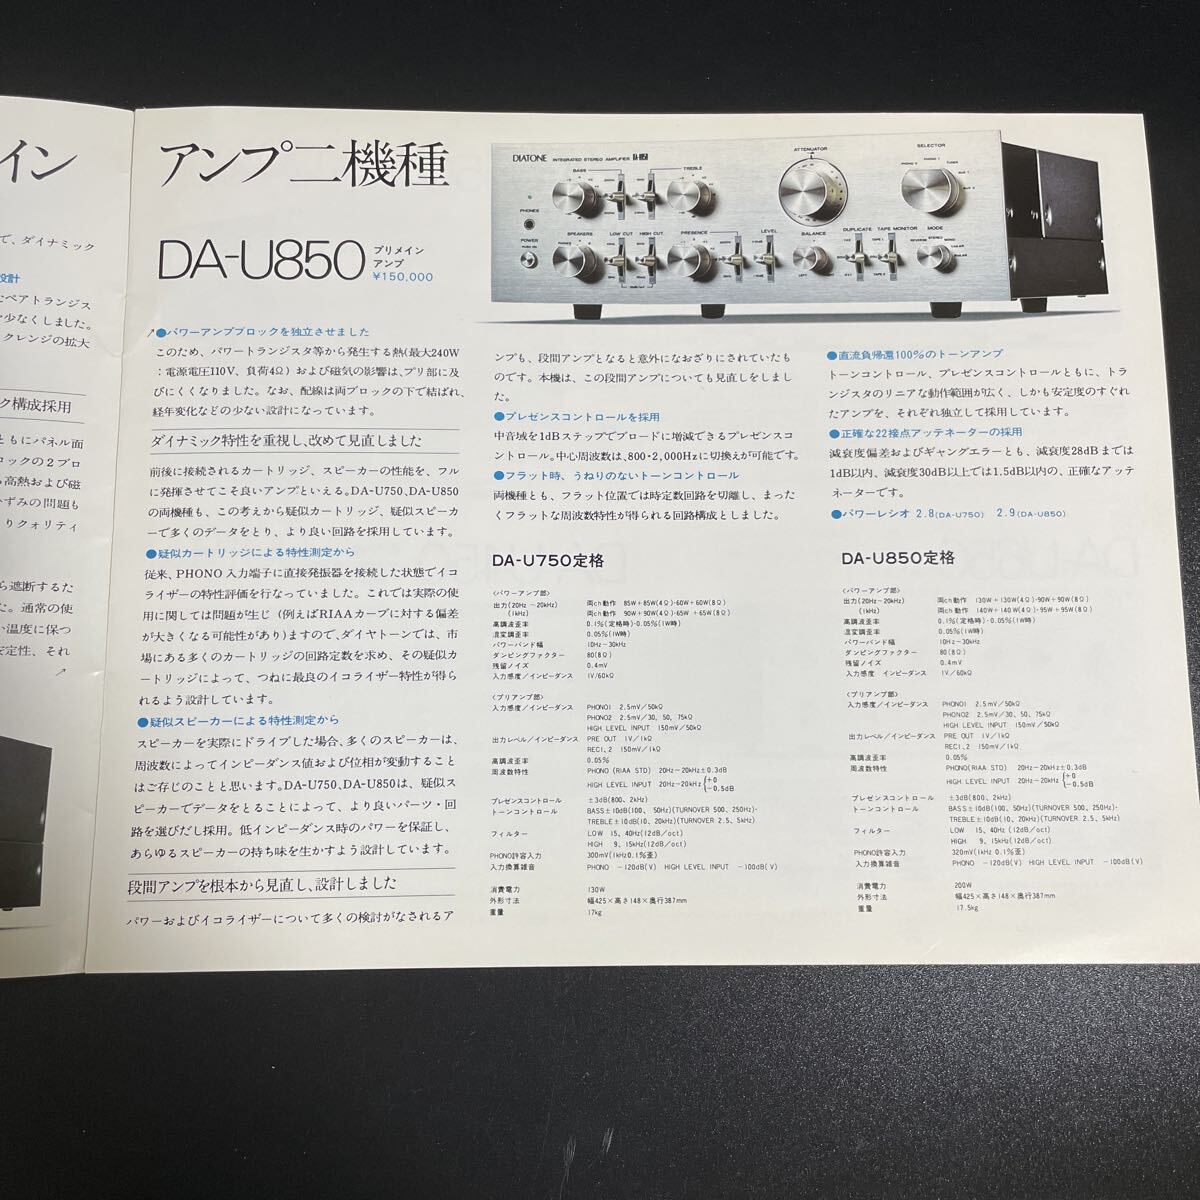 イン
で、ダイナミック
設計
なペアトランジス
少なくしました。
クレンジの拡大
ク構成採用
ともにパネル面
ロックの2ブロ
高熱および磁
ずみの問題も
りクォリティ
ら遮断するた
た。通常の使
い温度に保つ
安定性、それ
アンプ二機種
DA-U850 プリメイン
アンプ
¥150,000
●パワーアンプブロックを独立させました
このため、パワートランジスタ等から発生する熱(最大240W
:電源電圧110V、負荷4Ω)および磁気の影響は、プリ部に及
びにくくなりました。なお、配線は両ブロックの下で結ばれ、
経年変化などの少ない設計になっています。
ダイナミック特性を重視し、改めて見直しました
前後に接続されるカートリッジ、スピーカーの性能を、フル
に発揮させてこそ良いアンプといえる。DA-U750、DA-U850
の両機種も、この考えから疑似カートリッジ、疑似スピーカ
ーで多くのデータをとり、より良い回路を採用しています。
●疑似カートリッジによる特性測定から
従来、PHONO入力端子に直接発振器を接続した状態でイコ
ライザーの特性評価を行なっていました。これでは実際の使
用に関しては問題が生じ(例えばRIAAカーブに対する偏差
が大きくなる可能性があり)ますので、ダイヤトーンでは、市
場にある多くのカートリッジの回路定数を求め、その疑似カ
ートリッジによって、つねに最良のイコライザー特性が得ら
れるよう設計しています。
●疑似スピーカーによる特性測定から
スピーカーを実際にドライブした場合、多くのスピーカーは、
周波数によってインピーダンス値および位相が変動すること
はご存じのことと思います。DA-U750、DA-U850は、疑似ス
ピーカーでデータをとることによって、より良いパーツ・回
路を選びだし採用。低インピーダンス時のパワーを保証し、
あらゆるスピーカーの持ち味を生かすよう設計しています。
段間アンプを根本から見直し、設計しました
パワーおよびイコライザーについて多くの検討がなされるア
DIATONE INTEGRATED STEREO AMPLIFIER
BASS
TREBLE
ATTENUATOR
SELECTOR
PHONES
POWER
SPEAKERS
LOW CUT
HIGH CUT
PRESENCE
LEVEL
BALANCE
DUPLICATE
TAPE MONITOR
MODE
ンプも、段間アンプとなると意外になおざりにされていたも
のです。本機は、この段間アンプについても見直しをしまし
た。
●プレゼンスコントロールを採用
中音域を1dBステップでブロードに増減できるプレゼンスコ
ントロール。中心周波数は、800・2,000Hzに切換えが可能です。
●フラット時、うねりのないトーンコントロール
両機種とも、フラット位置では時定数回路を切離し、まった
くフラットな周波数特性が得られる回路構成としました。
●直流負帰還100%のトーンアンプ
トーンコントロール、プレゼンスコントロールともに、トラ
ンジスタのリニアな動作範囲が広く、しかも安定度のすぐれ
たアンプを、それぞれ独立して採用しています。
●正確な22接点アッテネーターの採用
減衰度偏差およびギャングエラーとも、減衰度28dBまでは
1dB以内、減衰度30dB以上では1.5dB以内の、正確なアッテ
ネーターです。
●パワーレシオ 2.8(DA-U750) 2.9(DA-U850)
DA-U750定格
〈パワーアンプ部〉
出力(20Hz~20kHz) 両ch動作 85W+85W(4Ω)・60W+60W(8Ω)
(1kHz) 両ch動作 90W+90W(4Ω)・65W+65W(8Ω)
高調波歪率 0.1%(定格時)・0.05%(1W時)
混変調歪率 0.05%(1W時)
パワーバンド幅 10Hz~30kHz
ダンピングファクター 80(8Ω)
残留ノイズ 0.4mV
入力感度/インピーダンス 1V/60kΩ
〈プリアンプ部〉
入力感度/インピーダンス PHONO1 2.5mV/50kΩ
PHONO2 2.5mV/30、50、75kΩ
HIGH LEVEL INPUT 150mV/50kΩ
出力レベル/インピーダンス PRE OUT 1V/1kΩ
REC1、2 150mV/1kΩ
高調波歪率 0.05%
周波数特性 PHONO(RIAA STD) 20Hz~20kHz±0.3dB
HIGH LEVEL INPUT 20Hz~20kHz{+0 -0.5dB
プレゼンスコントロール ±3dB(800、2kHz)
トーンコントロール BASS±10dB(100、50Hz)(TURNOVER 500、250Hz)・
TREBLE±10dB(10、20kHz)(TURNOVER 2.5、5kHz)
フィルター LOW 15、40Hz(12dB/oct)
HIGH 9、15kHz(12dB/oct)
PHONO許容入力 300mV(1kHz0.1%歪)
入力換算雑音 PHONO -120dB(V) HIGH LEVEL INPUT -100dB(V)
消費電力 130W
外形寸法 幅425×高さ148×奥行387mm
重量 17kg
DA-U850定格
〈パワーアンプ部〉
出力(20Hz~20kHz) 両ch動作 130W+130W(4Ω)・90W+90W(8Ω)
(1kHz) 両ch動作 140W+140W(4Ω)・95W+95W(8Ω)
高調波歪率 0.1%(定格時)・0.05%(1W時)
混変調歪率 0.05%(1W時)
パワーバンド幅 10Hz~30kHz
ダンピングファクター 80(8Ω)
残留ノイズ 0.4mV
入力感度 インピーダンス 1V/60kΩ
〈プリアンプ部〉
入力感度/インピーダンス PHONO1 2.5mV/50kΩ
PHONO2 2.5mV/30、50、75kΩ
HIGH LEVEL INPUT 150mV/50kΩ
出力レベル/インピーダンス PRE OUT 1V/1kΩ
REC1、2 150mV/1kΩ
高調波歪率 0.05%
周波数特性 PHONO(RIAA STD) 20Hz~20kHz±0.3dB
HIGH LEVEL INPUT 20Hz~20kHz{+0 -0.5dB
プレゼンスコントロール ±3dB(800、2kHz)
トーンコントロール BASS±10dB(100、50Hz)(TURNOVER 500、250Hz)・
TREBLE±10dB(10、20kHz)(TURNOVER 2.5、5kHz)
フィルター LOW 15、40Hz(12dB/oct)
HIGH 9、15kHz(12dB/oct)
PHONO許容入力 320mV(1kHz 0.1%歪)
入力換算雑音 PHONO -120dB(V) HIGH LEVEL INPUT -100dB(V)
消費電力 200W
外形寸法 幅425×高さ148×奥行387mm
重量 17.5kg